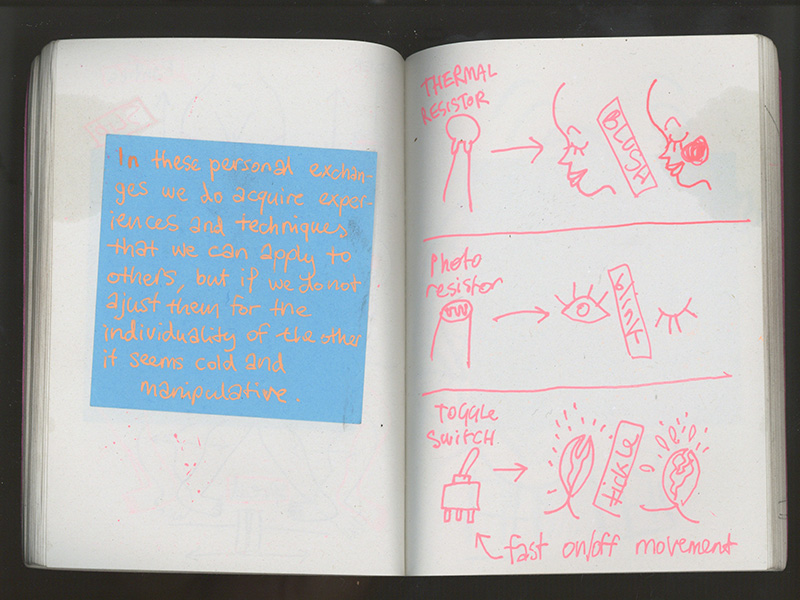 In these personal exchan-
ges we do acquire exper-
iences and techniques
that we can apply to
others, but if we do not
ajust them for the
individuality of the other
it seems cold and
manipulative.
THERMAL
RESISTOR
BLUSH
Photo
resistor
blink
TOGGLE
SWITCH
tickle
fast on/off movement